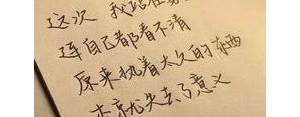 这次 我站在
连自己都看不清
原来执着太久的东西
本就失去了意义